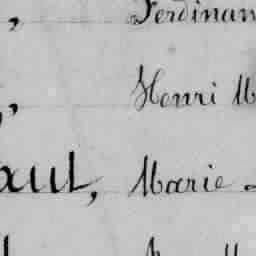 , Ferdinan
, Henri M
aut, Marie